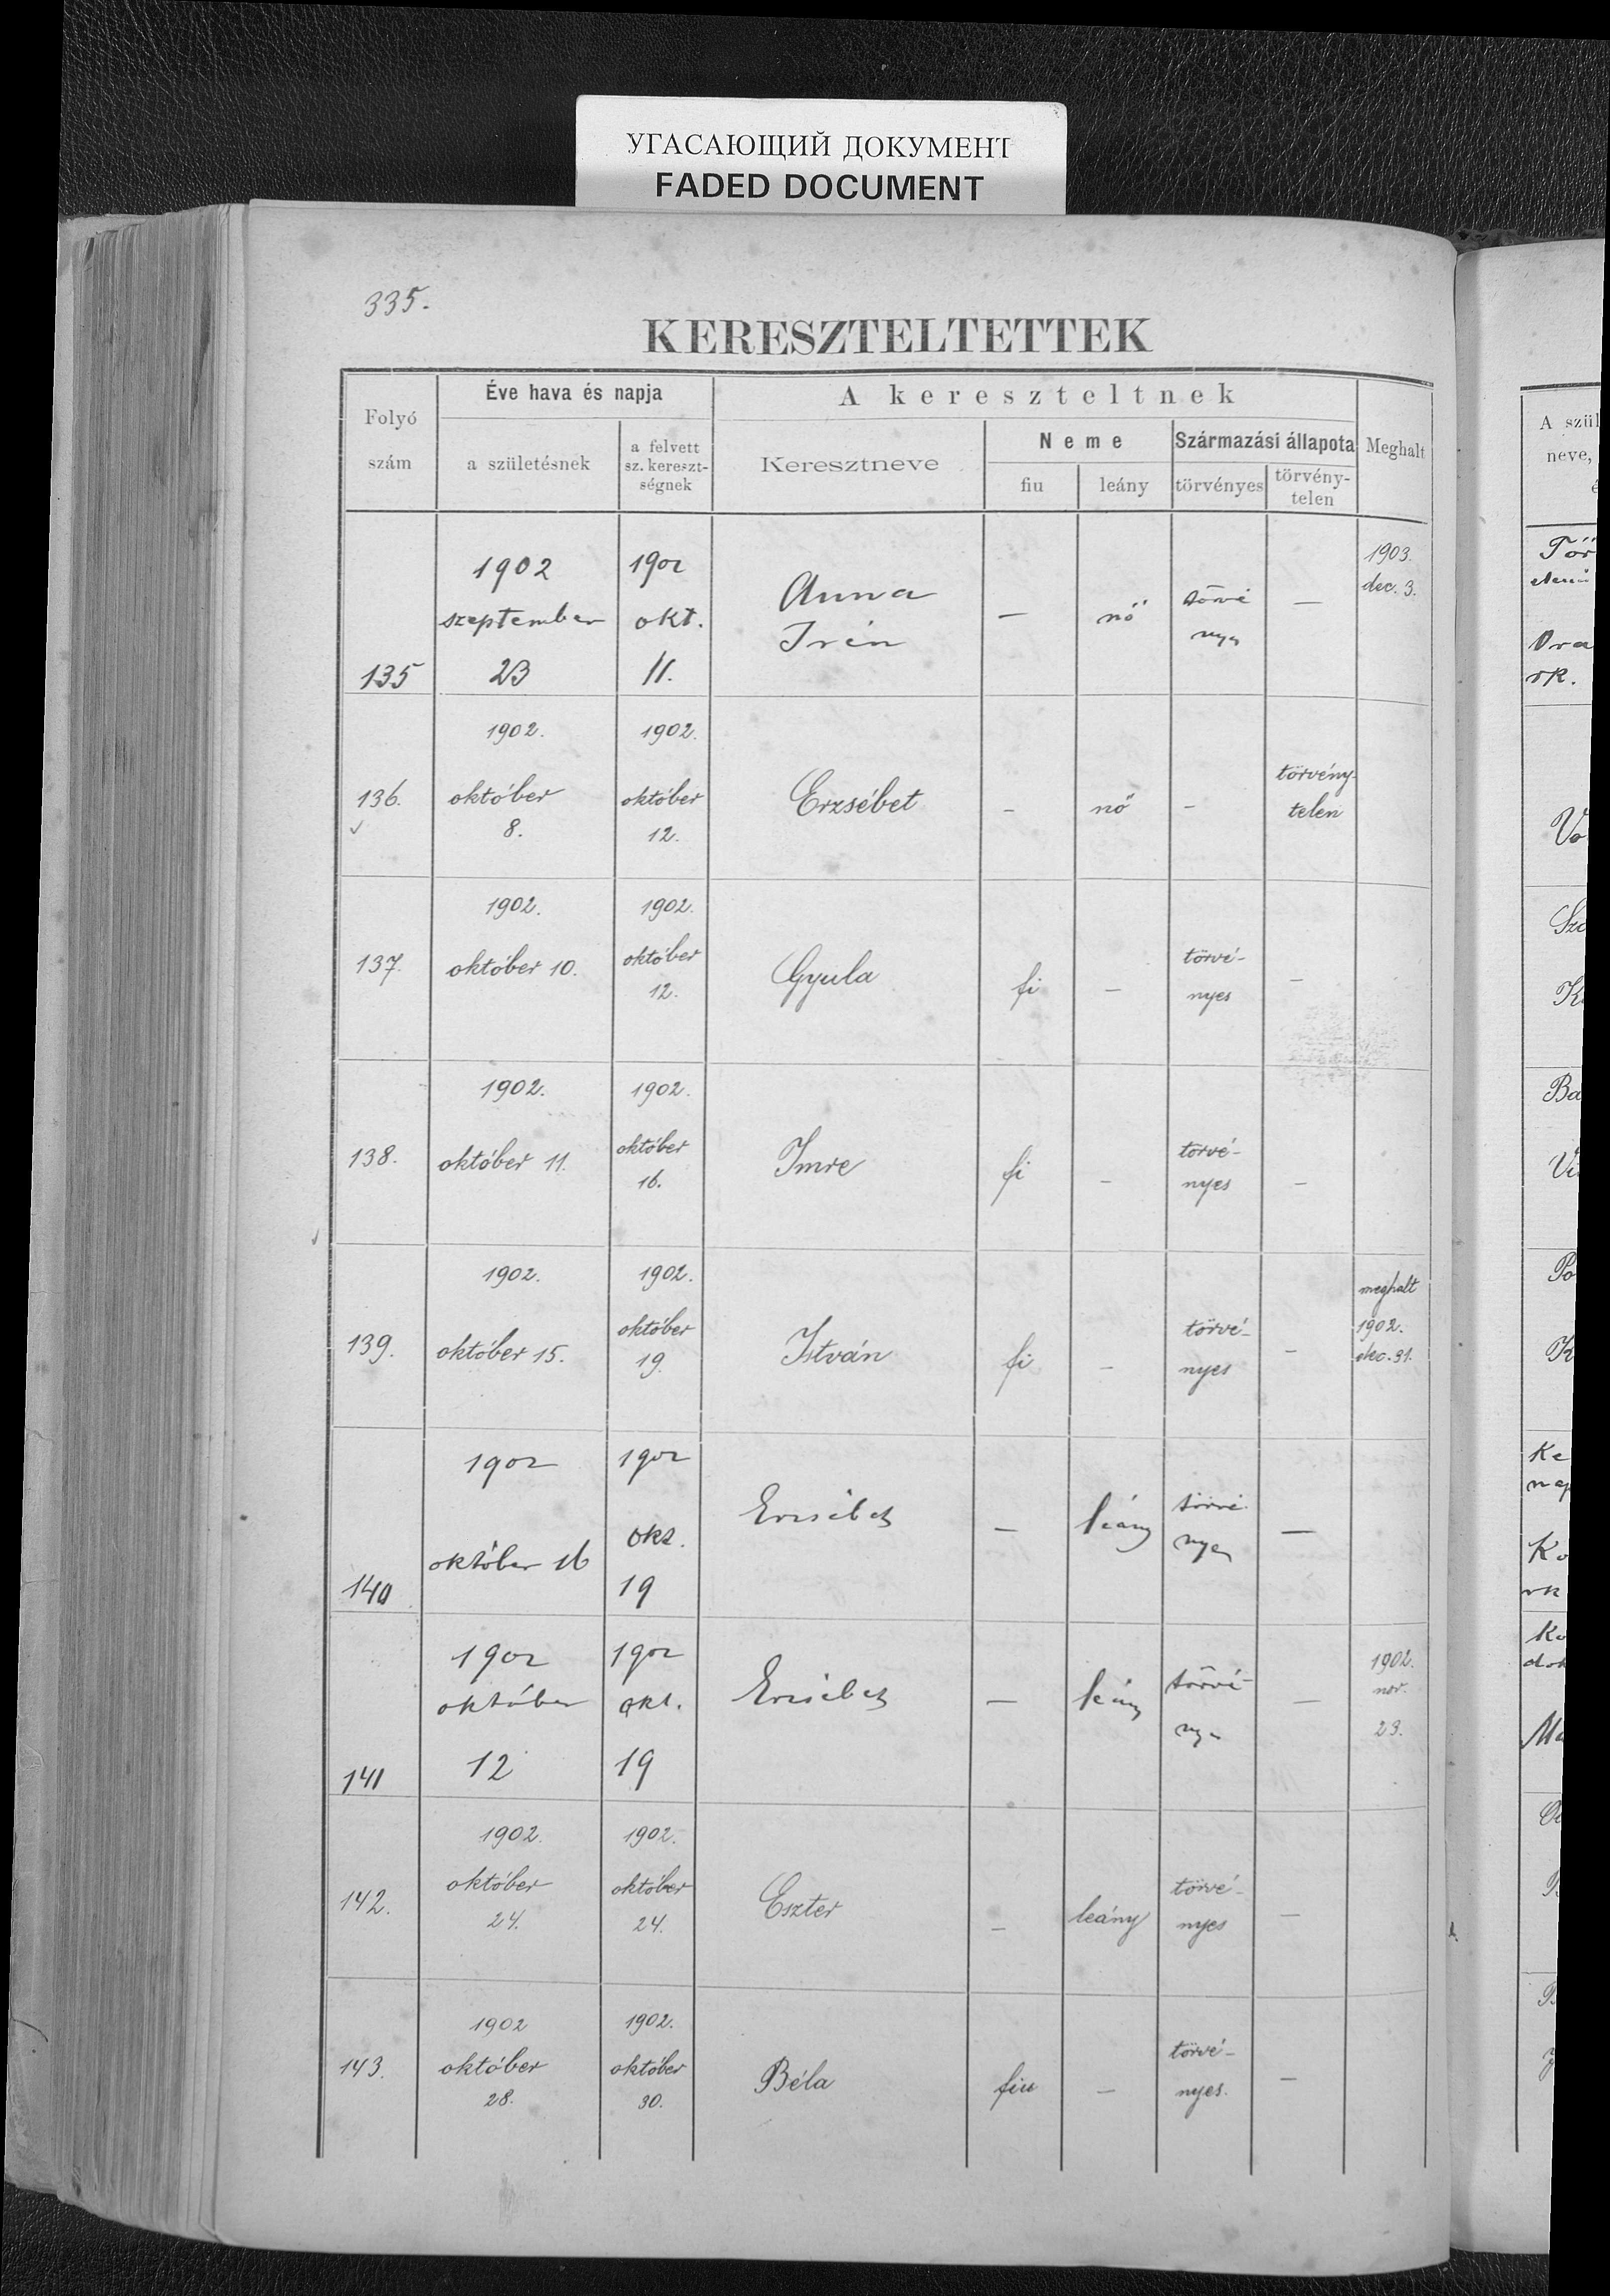 УГАСАЮЩИЙ ДОКУМЕНТ
FADED DOCUMENT
335.
KERESZTELTETTEK
Folyó szám
Éve hava és napja
a születésnek
a felvett sz. kereszt-ségnek
A kereszteltnek
Keresztneve
Neme
fiu
leány
Származási állapota
törvényes
törvény-telen
Meghalt
135 1902 szeptember 23 1902 okt. 11. Anna Irén — nő törvé nyes — 1903. dec. 3.
136. 1902. október 8. 1902. október 12. Erzsébet – nő – törvény-telen
137. 1902. október 10. 1902. október 12. Gyula fi – törvé-nyes –
138. 1902. október 11. 1902. október 16. Imre fi – törvé-nyes –
139. 1902. október 15. 1902. október 19. István fi – törvé-nyes – meghalt 1902. dec. 31.
140 1902 október 16 1902 okt. 19 Erzsébet — leány törvé-nyes —
141 1902 október 12 1902 okt. 19 Erzsébet — leány törvé-nyes — 1902. nov. 23.
142. 1902. október 24. 1902. október 24. Eszter – leány törvé-nyes –
143. 1902 október 28. 1902. október 30. Béla fiu – törvé-nyes. –
A szül
neve,